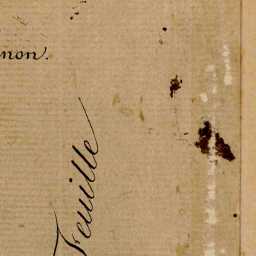 non.
Feuille